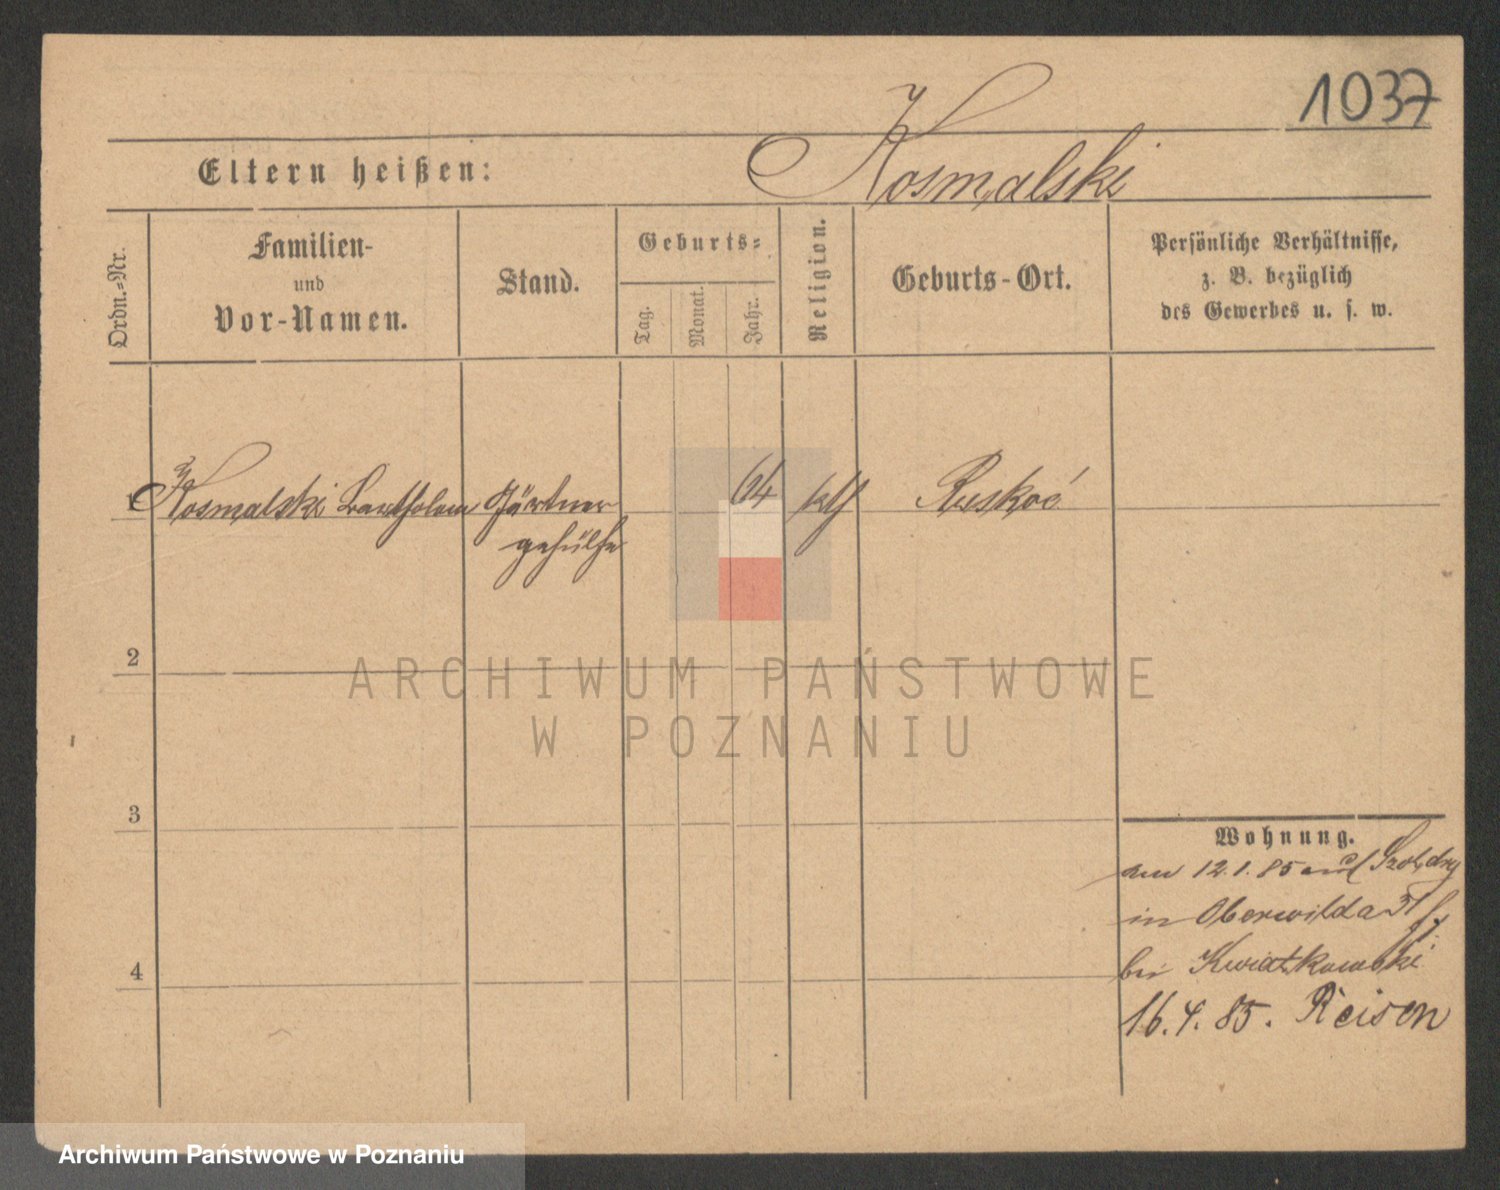 1037
Eltern heißen: Kosmalski
Ordn.-Nr.
Familien-
und
Vor-Namen.
Stand.
Geburts-
Tag.
Monat.
Jahr.
Religion.
Geburts-Ort.
Persönliche Verhältnisse,
z. B. bezüglich
des Gewerbes u. s. w.
1 Kosmalski Bartholom Gärtner 64 kth Ruskoć
gehülfe
2
ARCHIWUM PAŃSTWOWE
W POZNANIU
3
Wohnung.
am 12.1.85 aus
in Oberwilda 31
4
bei Kwiatkowski
16.4.85. Reisen
Archiwum Państwowe w Poznaniu